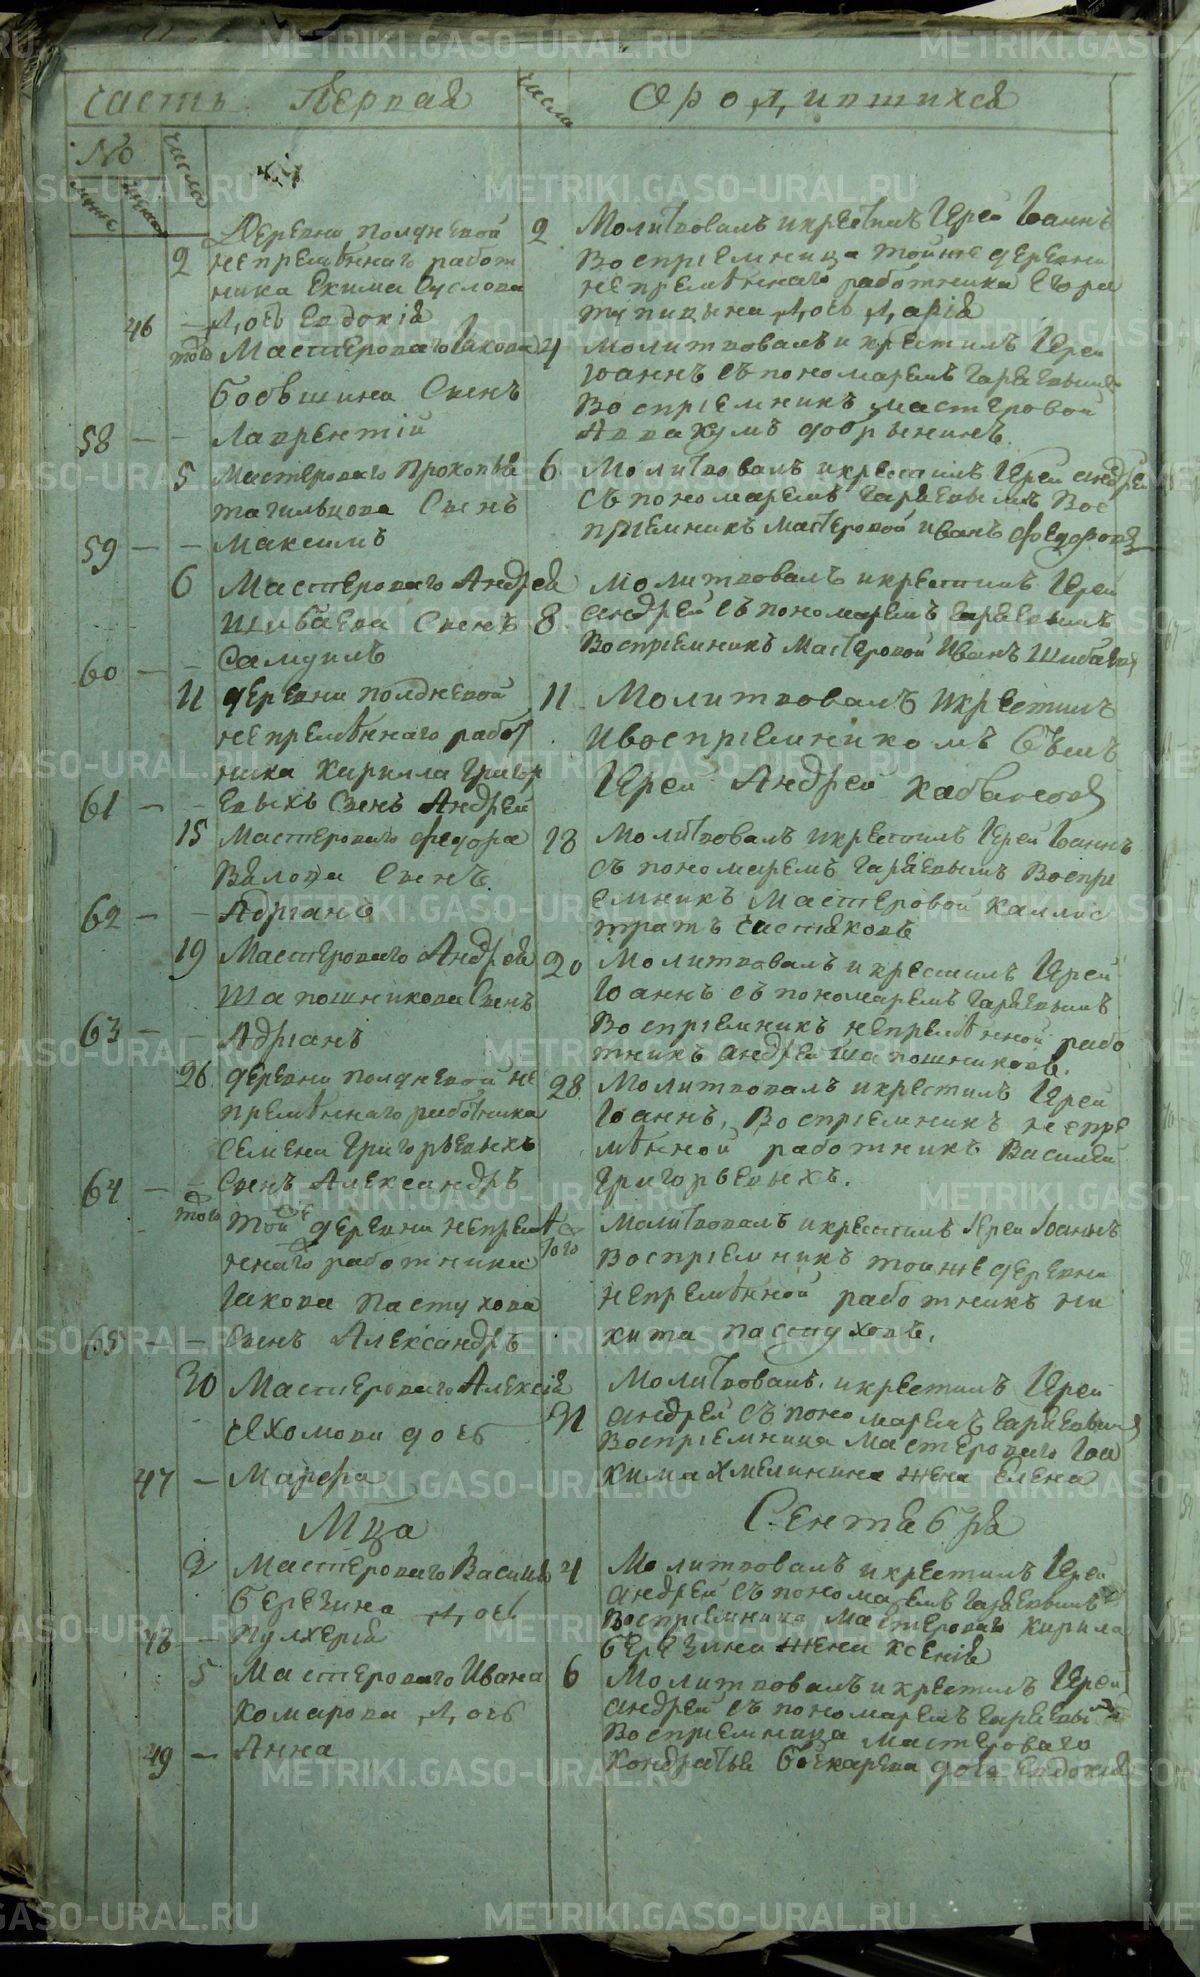 часть Первая
числа
О родившихся
№
числа
муже
женск
Деревни полдневой
2 непременнаго работ
ника Екима Суслова
46 — дочь Евдокія
2 Молитвовалъ и крестилъ Іерей Іоаннъ
Воспріемница тойже деревни
непременнаго работника Егора
дочь Дарія
того Мастероваго Іакова
Сынъ
58 — — Лаврентій
4 Молитвовалъ и крестилъ Іерей
Іоаннъ съ пономаремъ Гаряевымъ
Воспріемникъ мастеровой
Аввакумъ добрынинъ.
5 Мастероваго Прокопья
тагильцова Сынъ
59 — — Максимъ
6 Молитвовалъ и крестилъ Іерей андрей
съ пономаремъ Гаряевымъ Вос
пріемникъ Мастеровой иванъ Федоровъ
6 Мастероваго Андрея
Шибаева Сынъ
60 — — Самуилъ
8 Молитвовалъ и крестилъ Іерей
андрей съ пономаремъ Гаряевымъ
Воспріемникъ Мастеровой Иванъ Шибаевъ
11 деревни полдневой
непременнаго работ
ника Кирилла Григор
61 — — евыхъ Сынъ Андрей
11 Молитвовалъ и крестилъ
и воспріемникомъ былъ
Іерей Андрей Хабаковъ
15 Мастероваго Федора
Вялова Сынъ
62 — — Адріанъ
18 Молитвовалъ и крестилъ Іерей Іоаннъ
съ пономаремъ Гаряевымъ Воспрі
емникъ Мастеровой Каллис
тратъ Чистяковъ
19 Мастероваго Андрея
Шапошникова Сынъ
63 — — Адріанъ
20 Молитвовалъ и крестилъ Іерей
Іоаннъ съ пономаремъ Гаряевымъ
Воспріемникъ непременной рабо
тникъ андрей шапошниковъ.
26 деревни полдневой не
пременнаго работника
Семена Григорьевыхъ
64 — — Сынъ Александръ
28 Молитвовалъ и крестилъ Іерей
Іоаннъ, Воспріемникъ непре
менной работникъ Василій
Григорьевыхъ.
того Той же деревни непреме
ннаго работника
Іакова Пастухова
65 — — Сынъ Александръ
того Молитвовалъ и крестилъ Іерей Іоаннъ
Воспріемникъ тойже деревни
непременной работникъ ни
кита пастуховъ.
30 Мастероваго Алексія
Яхомова дочь
47 — Марфа
31 Молитвовалъ и крестилъ Іерей
андрей съ пономаремъ Гаряевымъ
Воспріемница Мастероваго Іоа
кима Хмелинина жена Елена
Мца Сентября
2 Мастероваго Василья
Березина дочь
48 — Пулхерія
4 Молитвовалъ и крестилъ Іерей
андрей съ пономаремъ Гаряевымъ
Воспріемница Мастероваго Кирила
Березина жена Ксенія
5 Мастероваго Ивана
Комарова дочь
49 — Анна
6 Молитвовалъ и крестилъ Іерей
андрей съ пономаремъ Гаряевымъ
Воспріемница Мастероваго
Кондратья дочь Евдокія
METRIKI.GASO-URAL.RU